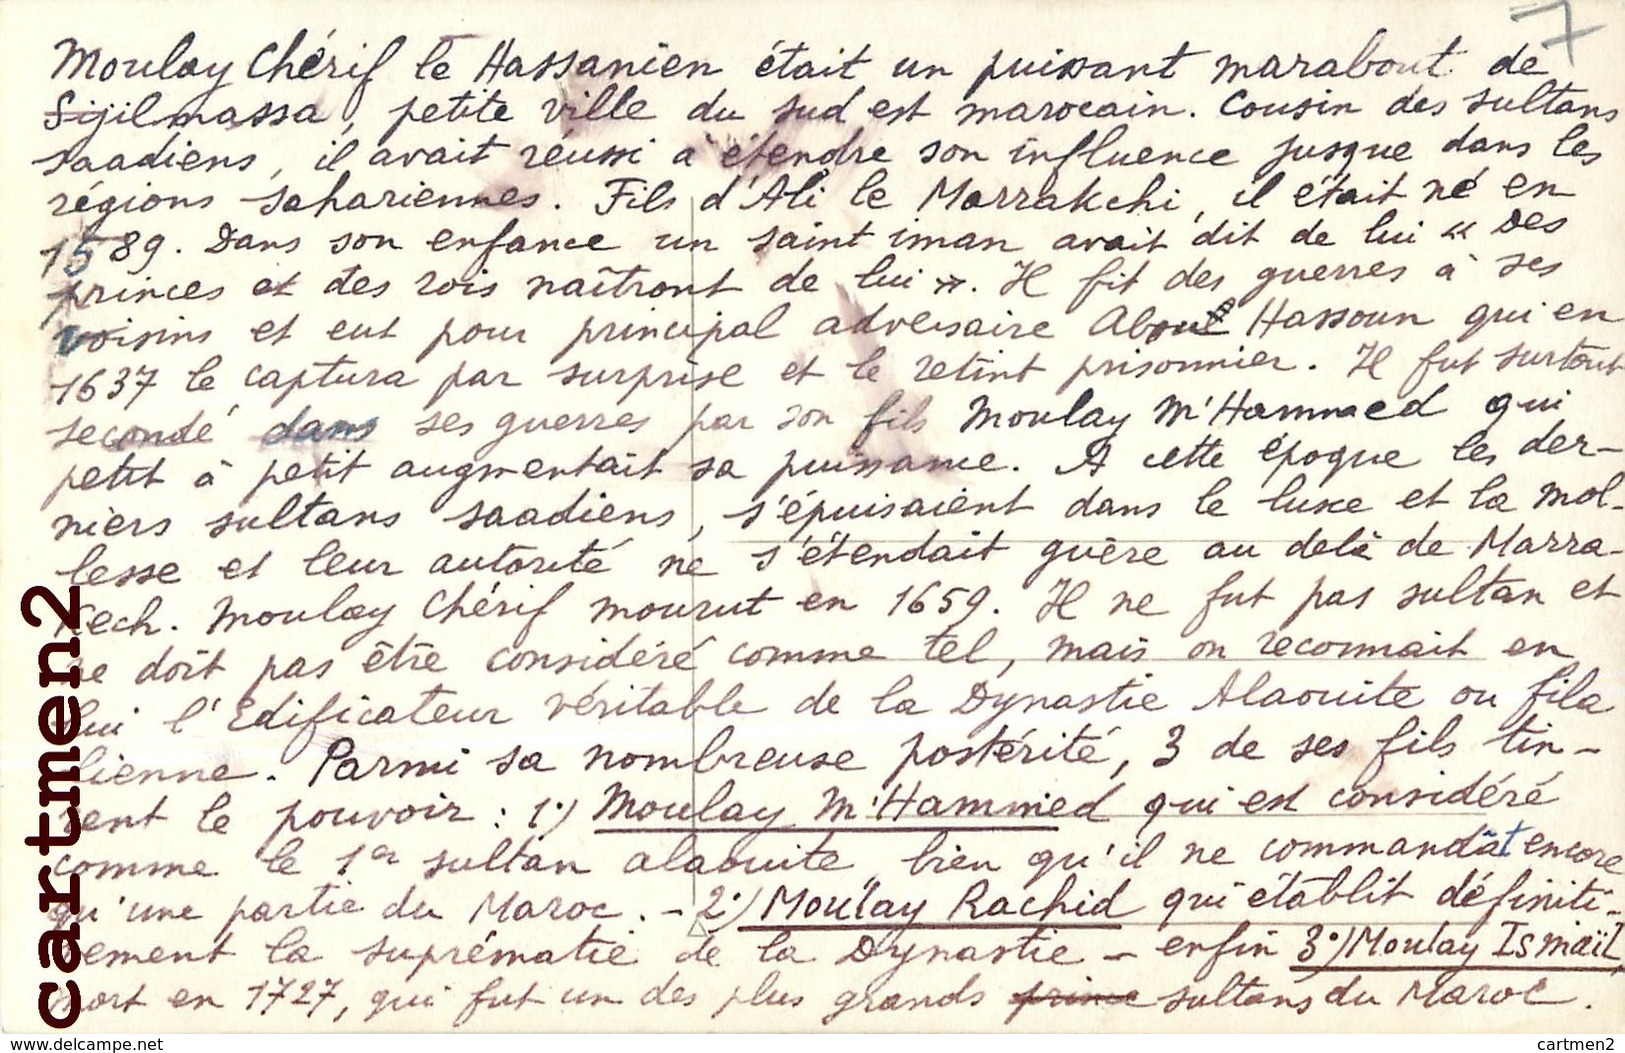 7
Moulay Chérif le Hassanien était un puissant marabout de
Sijilmassa, petite ville du sud est marocain. Cousin des sultans
saadiens, il avait réussi à étendre son influence jusque dans les
régions sahariennes. Fils d'Ali le Marrakchi, il était né en
1589. Dans son enfance un saint iman avait dit de lui « Des
princes et des rois naîtront de lui ». Il fit des guerres à ses
voisins et eut pour principal adversaire Abou Hassoun qui en
1637 le captura par surprise et le retint prisonnier. Il fut surtout
secondé dans ses guerres par son fils Moulay M'Hammed qui
petit à petit augmentait sa puissance. A cette époque les der-
niers sultans saadiens, s'épuisaient dans le luxe et la mol-
lesse et leur autorité ne s'étendait guère au delà de Marra-
Kech. Moulay Chérif mourut en 1659. Il ne fut pas sultan et
ne doit pas être considéré comme tel, mais on reconnait en
lui l'Edificateur véritable de la Dynastie Alaouite ou fila
lienne. Parmi sa nombreuse postérité, 3 de ses fils tin-
rent le pouvoir : 1°) Moulay M'Hammed qui est considéré
comme le 1er sultan alaouite, bien qu'il ne commandât encore
qu'une partie du Maroc. - 2°) Moulay Rachid qui établit définiti-
vement la suprématie de la Dynastie - enfin 3°) Moulay Ismaïl,
mort en 1727, qui fut un des plus grands prince sultans du Maroc.
cartmen2
www.delcampe.net
cartmen2